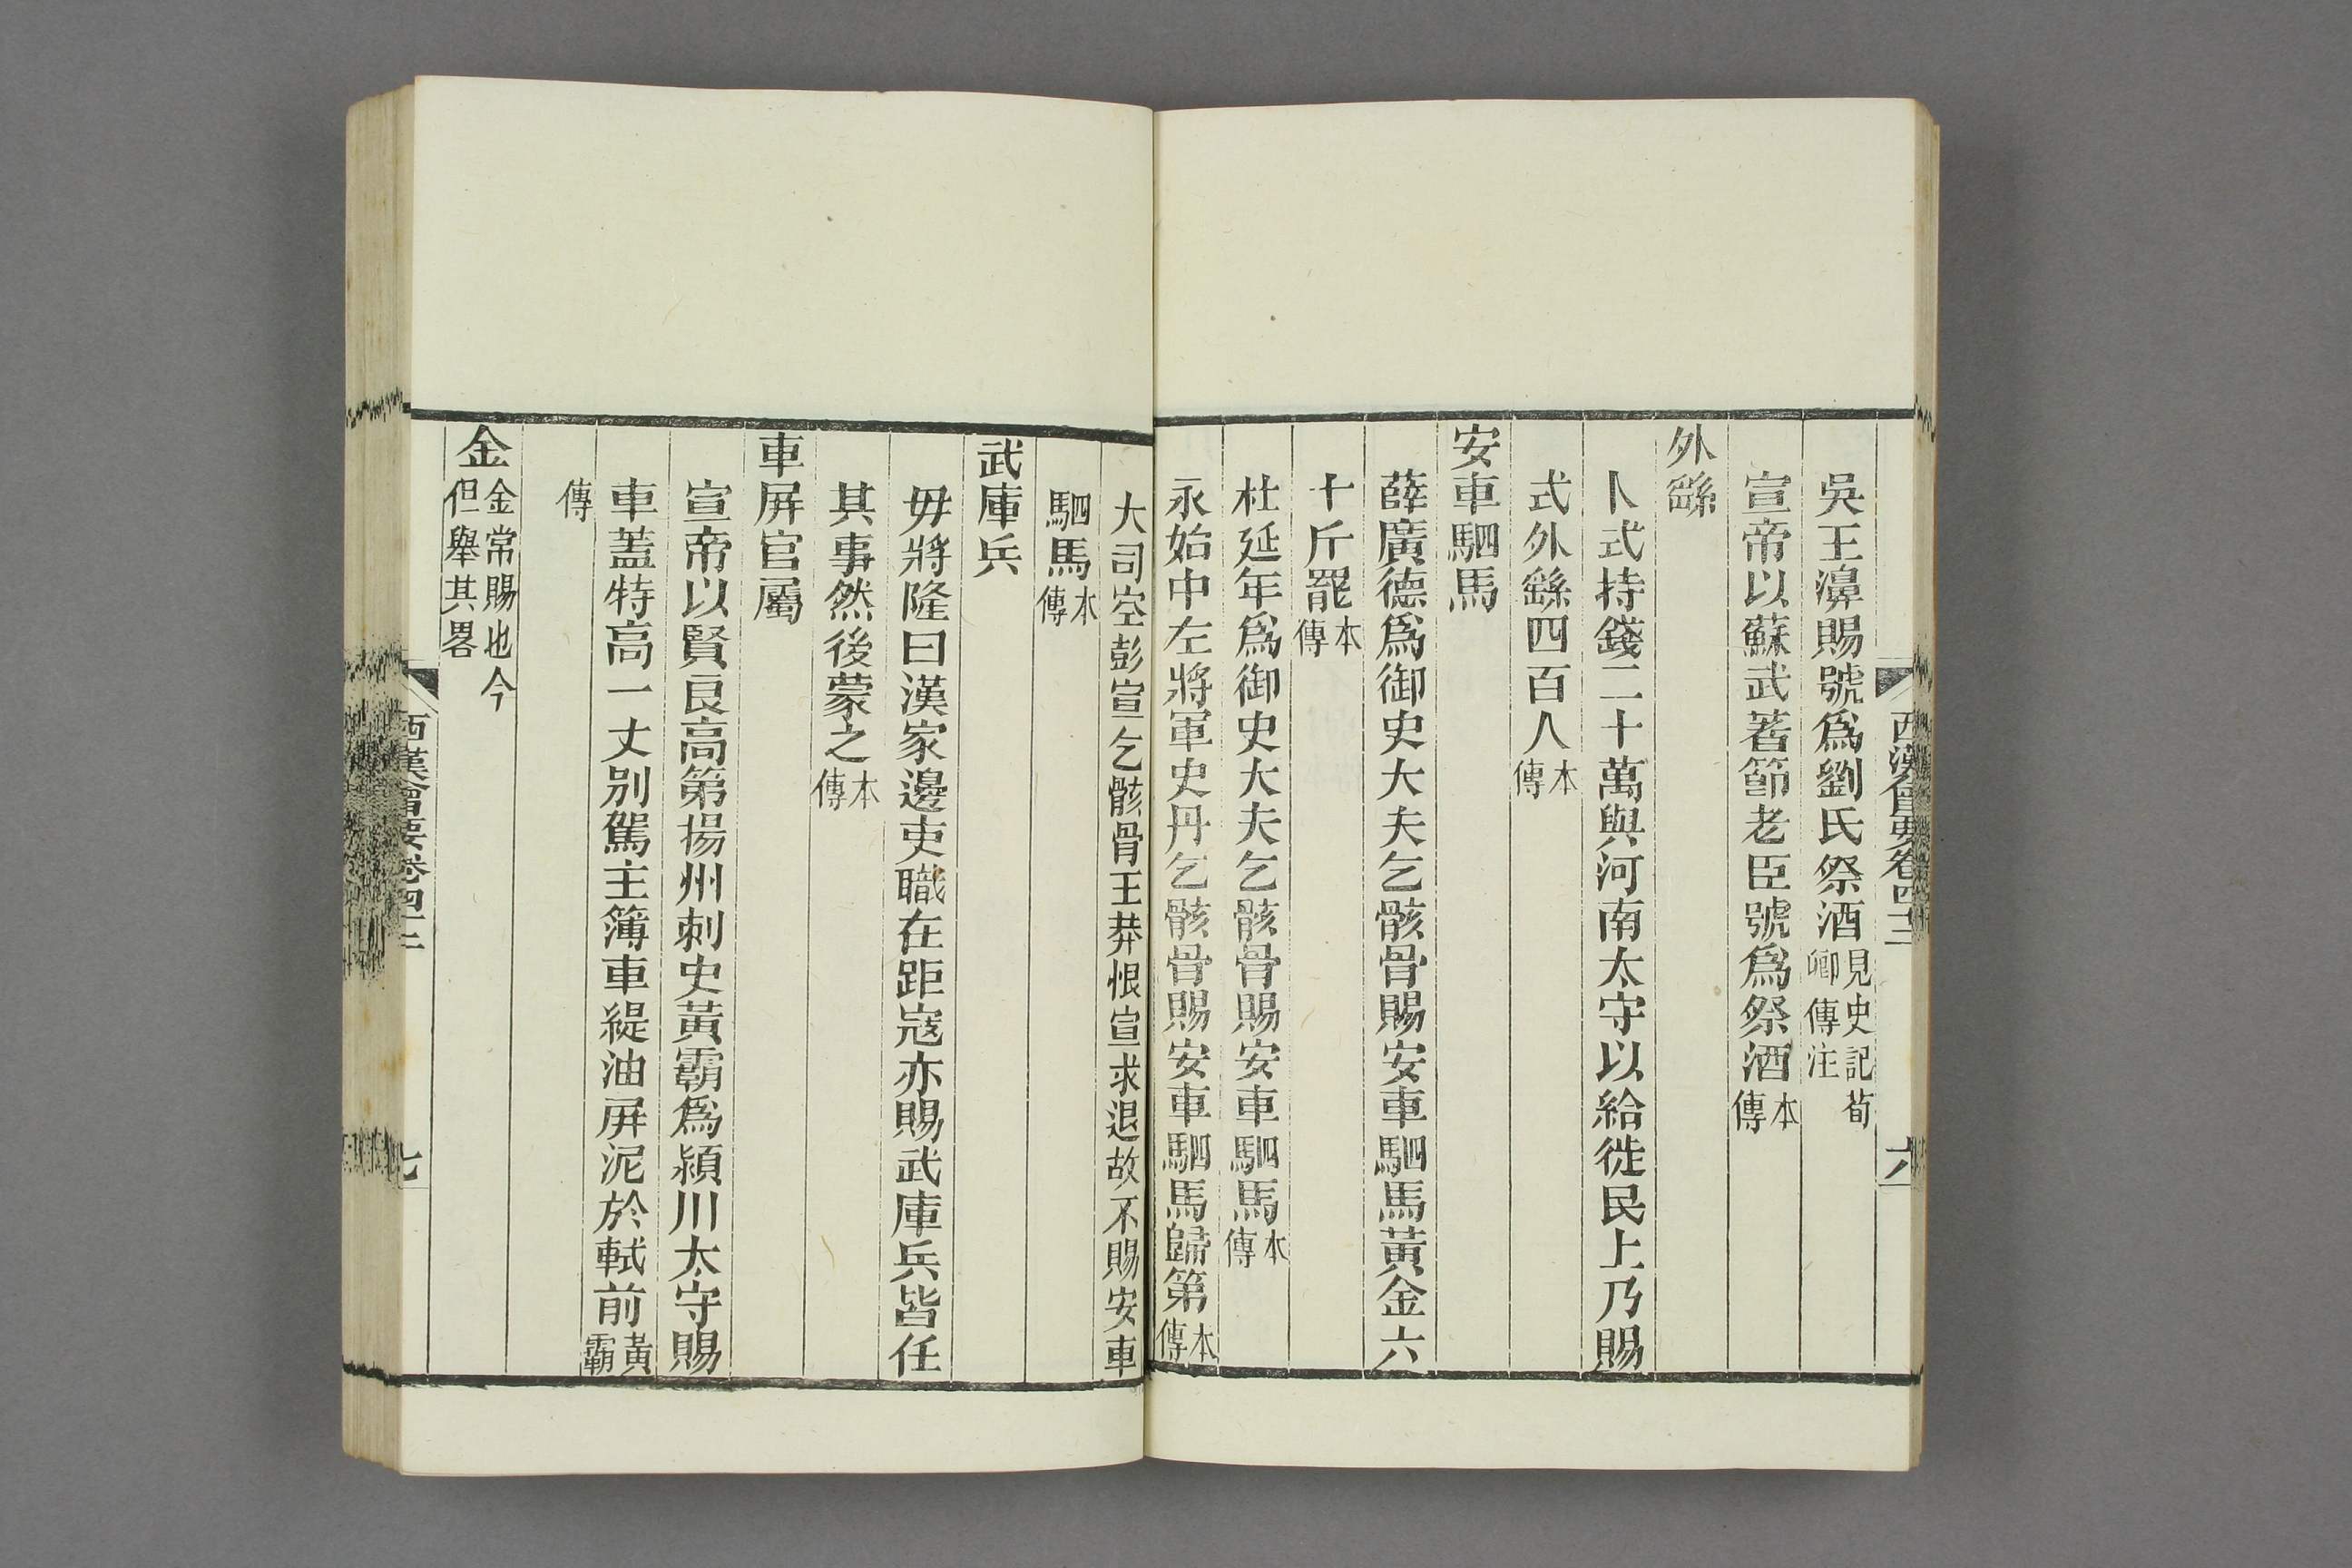 吳王濞賜號爲劉氏祭酒見史記荀卿傳注
宣帝以蘇武著節老臣號爲祭酒本傳
外繇
卜式持錢二十萬與河南太守以給徙民上乃賜
式外繇四百人本傳
安車駟馬
薛廣德爲御史大夫乞骸骨賜安車駟馬黃金六
十斤罷本傳
杜延年爲御史大夫乞骸骨賜安車駟馬本傳
永始中左將軍史丹乞骸骨賜安車駟馬歸第本傳
西漢會要卷四十二
六
大司空彭宣乞骸骨王莽恨宣求退故不賜安車
駟馬本傳
武庫兵
毋將隆曰漢家邊吏職在距寇亦賜武庫兵皆任
其事然後蒙之本傳
車屏官屬
宣帝以賢良高第揚州刺史黃霸爲潁川太守賜
車蓋特高一丈別駕主簿車緹油屏泥於軾前黃霸
傳
金金常賜也今但舉其畧
西漢會要卷四十二
七